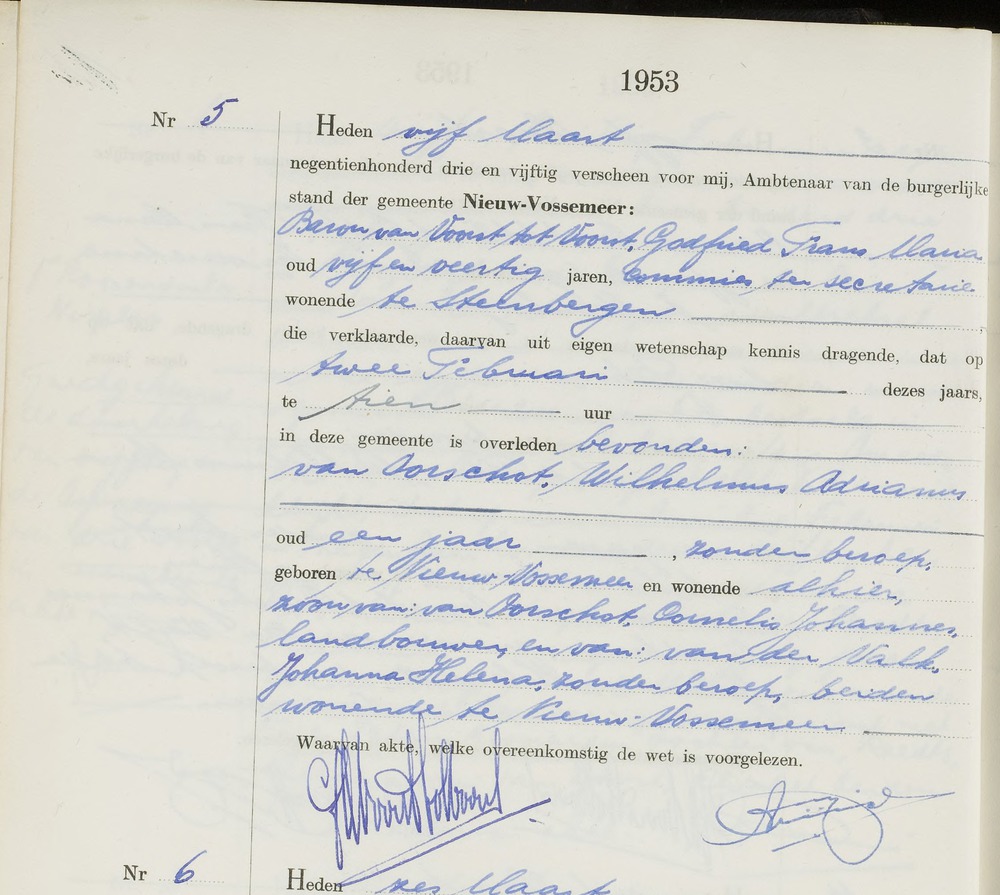 1953
Nr 5
Heden vijf Maart
negentienhonderd drie en vijftig verscheen voor mij, Ambtenaar van de burgerlijke
stand der gemeente Nieuw-Vossemeer:
Baron van Voorst tot Voorst, Godfried Frans Maria
oud vijf en veertig jaren, commies ter secretarie
wonende te Steenbergen
die verklaarde, daarvan uit eigen wetenschap kennis dragende, dat op
twee Februari dezes jaars,
te tien uur
in deze gemeente is overleden bevonden:
van Oorschot, Wilhelmus Adrianus
oud een jaar, zonder beroep,
geboren te Nieuw-Vossemeer en wonende alhier,
zoon van: van Oorschot, Cornelis Johannes,
landbouwer, en van: van der Valk,
Johanna Helena, zonder beroep, beiden
wonende te Nieuw-Vossemeer
Waarvan akte, welke overeenkomstig de wet is voorgelezen.
Nr 6
Heden zes Maart